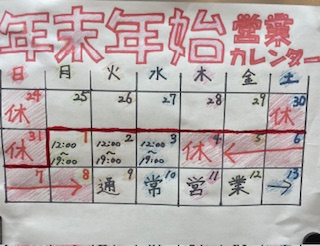 年末年始 営業カレンダー
日 月 火 水 木 金 土
24 25 26 27 28 29 30
休 休
31 1 2 3 4 5 6
休 12:00〜19:00 12:00〜19:00 12:00〜19:00 休
7 8 9 10 11 12 13
通 常 営 業